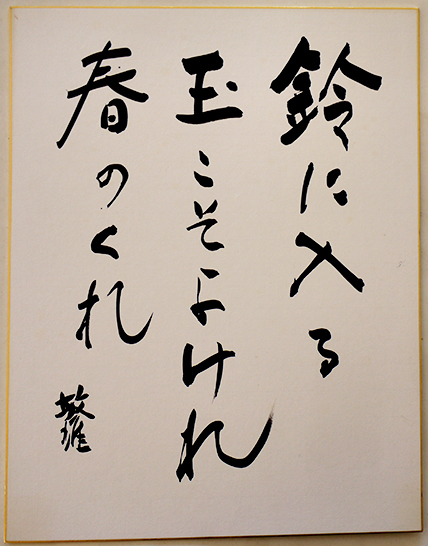 鈴に入る
玉こそよけれ
春のくれ